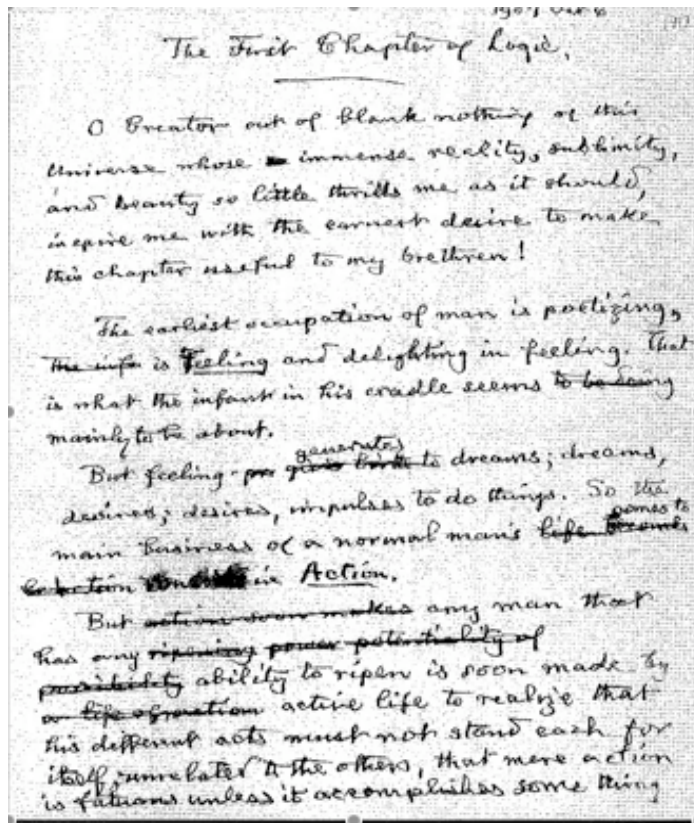 1907 Oct 6
The First Chapter of Logic.
O Creator out of blank nothing of this
Universe whose immense reality, sublimity,
and beauty so little thrills me as it should,
inspire me with the earnest desire to make
this chapter useful to my brethren!
The earliest occupation of man is poetizing,
The infa is Feeling and delighting in feeling. That
is what the infant in his cradle seems to be doing
mainly to be about.
generates
But feeling gives birth to dreams; dreams,
desires; desires, impulses to do things. So the
comes to
main business of a normal man's life becomes
be action in Action.
But action soon makes any man that
has any ripening power potentiality of
possibility ability to ripen is soon made by
a life of action active life to realize that
his different acts must not stand each for
itself unrelated to the others, that mere action
is fatuous unless it accomplishes some thing